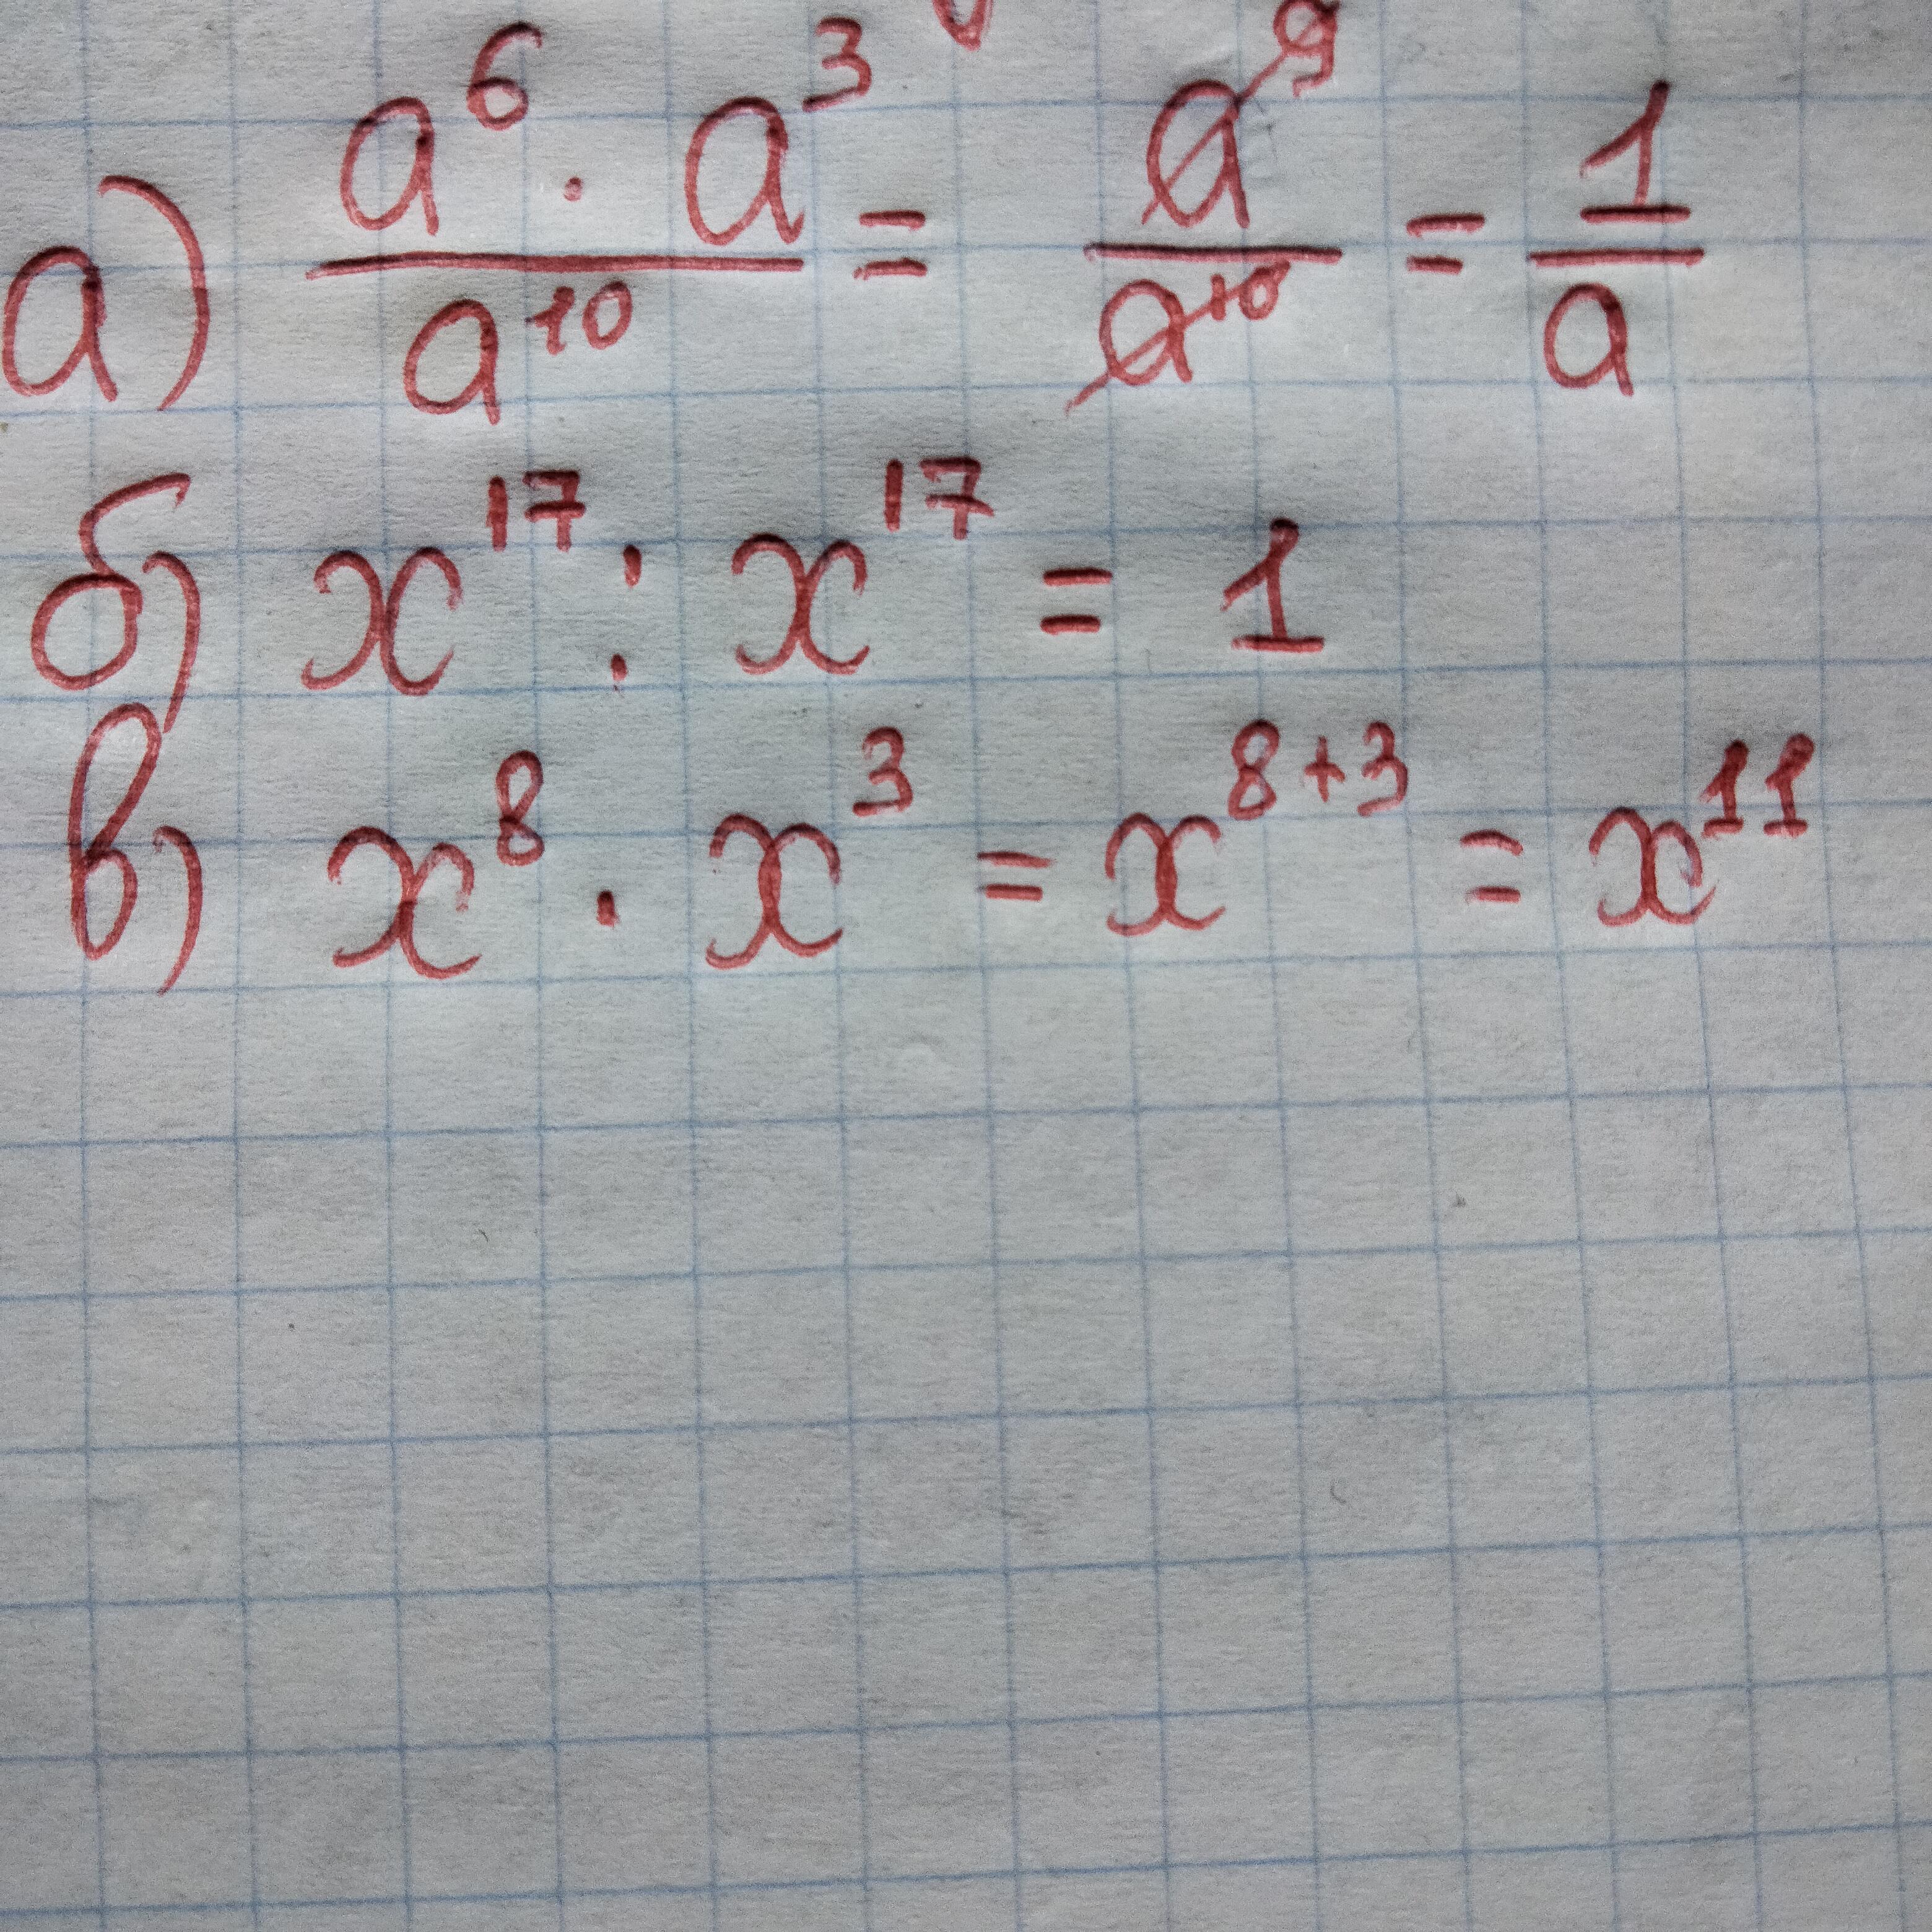 а) a⁶ · a³ / a¹⁰ = a⁹ / a¹⁰ = 1 / a
б) x¹⁷ : x¹⁷ = 1
в) x⁸ · x³ = x⁸⁺³ = x¹¹